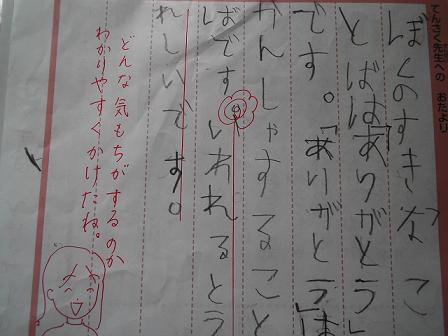 てんさく先生への おたより
ぼくのすきなこ
とばは「ありがとう」
です。「ありがとう」は
かんしゃすること
ばです。いわれるとう
れしいです。
どんな気もちがするのか
わかりやすくかけたね。